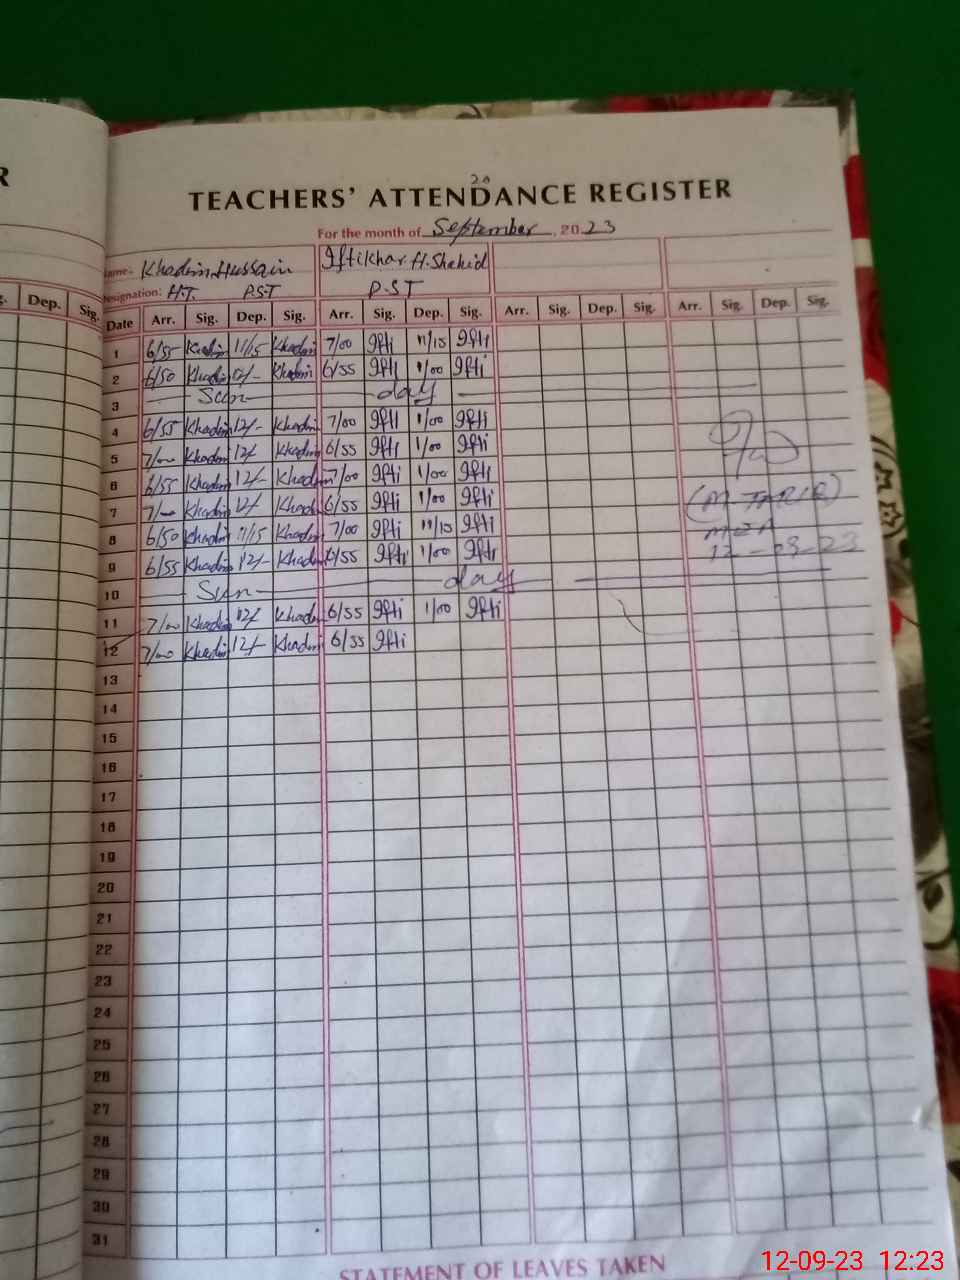 R
20
TEACHERS' ATTENDANCE REGISTER
For the month of September, 2023
ame:- Khadim Hussain Iftikhar H. Shahid
esignation: H.T. P.S.T P.S.T
g. Dep. Sig. Date Arr. Sig. Dep. Sig. Arr. Sig. Dep. Sig. Arr. Sig. Dep. Sig. Arr. Sig. Dep. Sig.
1 6/55 Khadim 11/15 Khadim 7/00 Ifti 11/15 Ifti
2 6/50 Khadim 12/- Khadim 6/55 Ifti 1/00 Ifti
3 Sun day
4 6/55 Khadim 12/- Khadim 7/00 Ifti 1/00 Ifti
5 7/00 Khadim 12/- Khadim 6/55 Ifti 1/00 Ifti
6 6/55 Khadim 12/- Khadim 7/00 Ifti 1/00 Ifti
7 7/00 Khadim 12/- Khadim 6/55 Ifti 1/00 Ifti
8 6/50 Khadim 11/15 Khadim 7/00 Ifti 11/15 Ifti
9 6/55 Khadim 12/- Khadim 6/55 Ifti 1/00 Ifti
10 Sun day
11 7/00 Khadim 12/- Khadim 6/55 Ifti 1/00 Ifti
12 7/00 Khadim 12/- Khadim 6/55 Ifti
(M. TARIQ)
MEA
12-09-23
13
14
15
16
17
18
19
20
21
22
23
24
25
26
27
28
29
30
31
STATEMENT OF LEAVES TAKEN
12-09-23 12:23